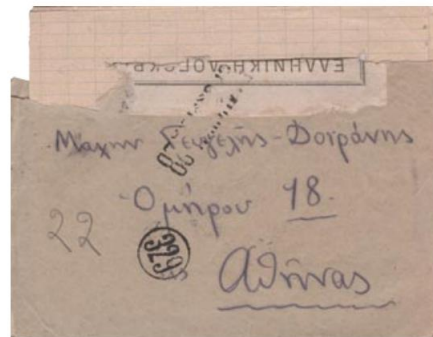 ΕΛΛΗΝΙΚΗ ΛΟΓΟΚΡΙ
Μαχην Γευγελής-Δοϊράνης
Ομήρου 18.
22
329
Αθήνας